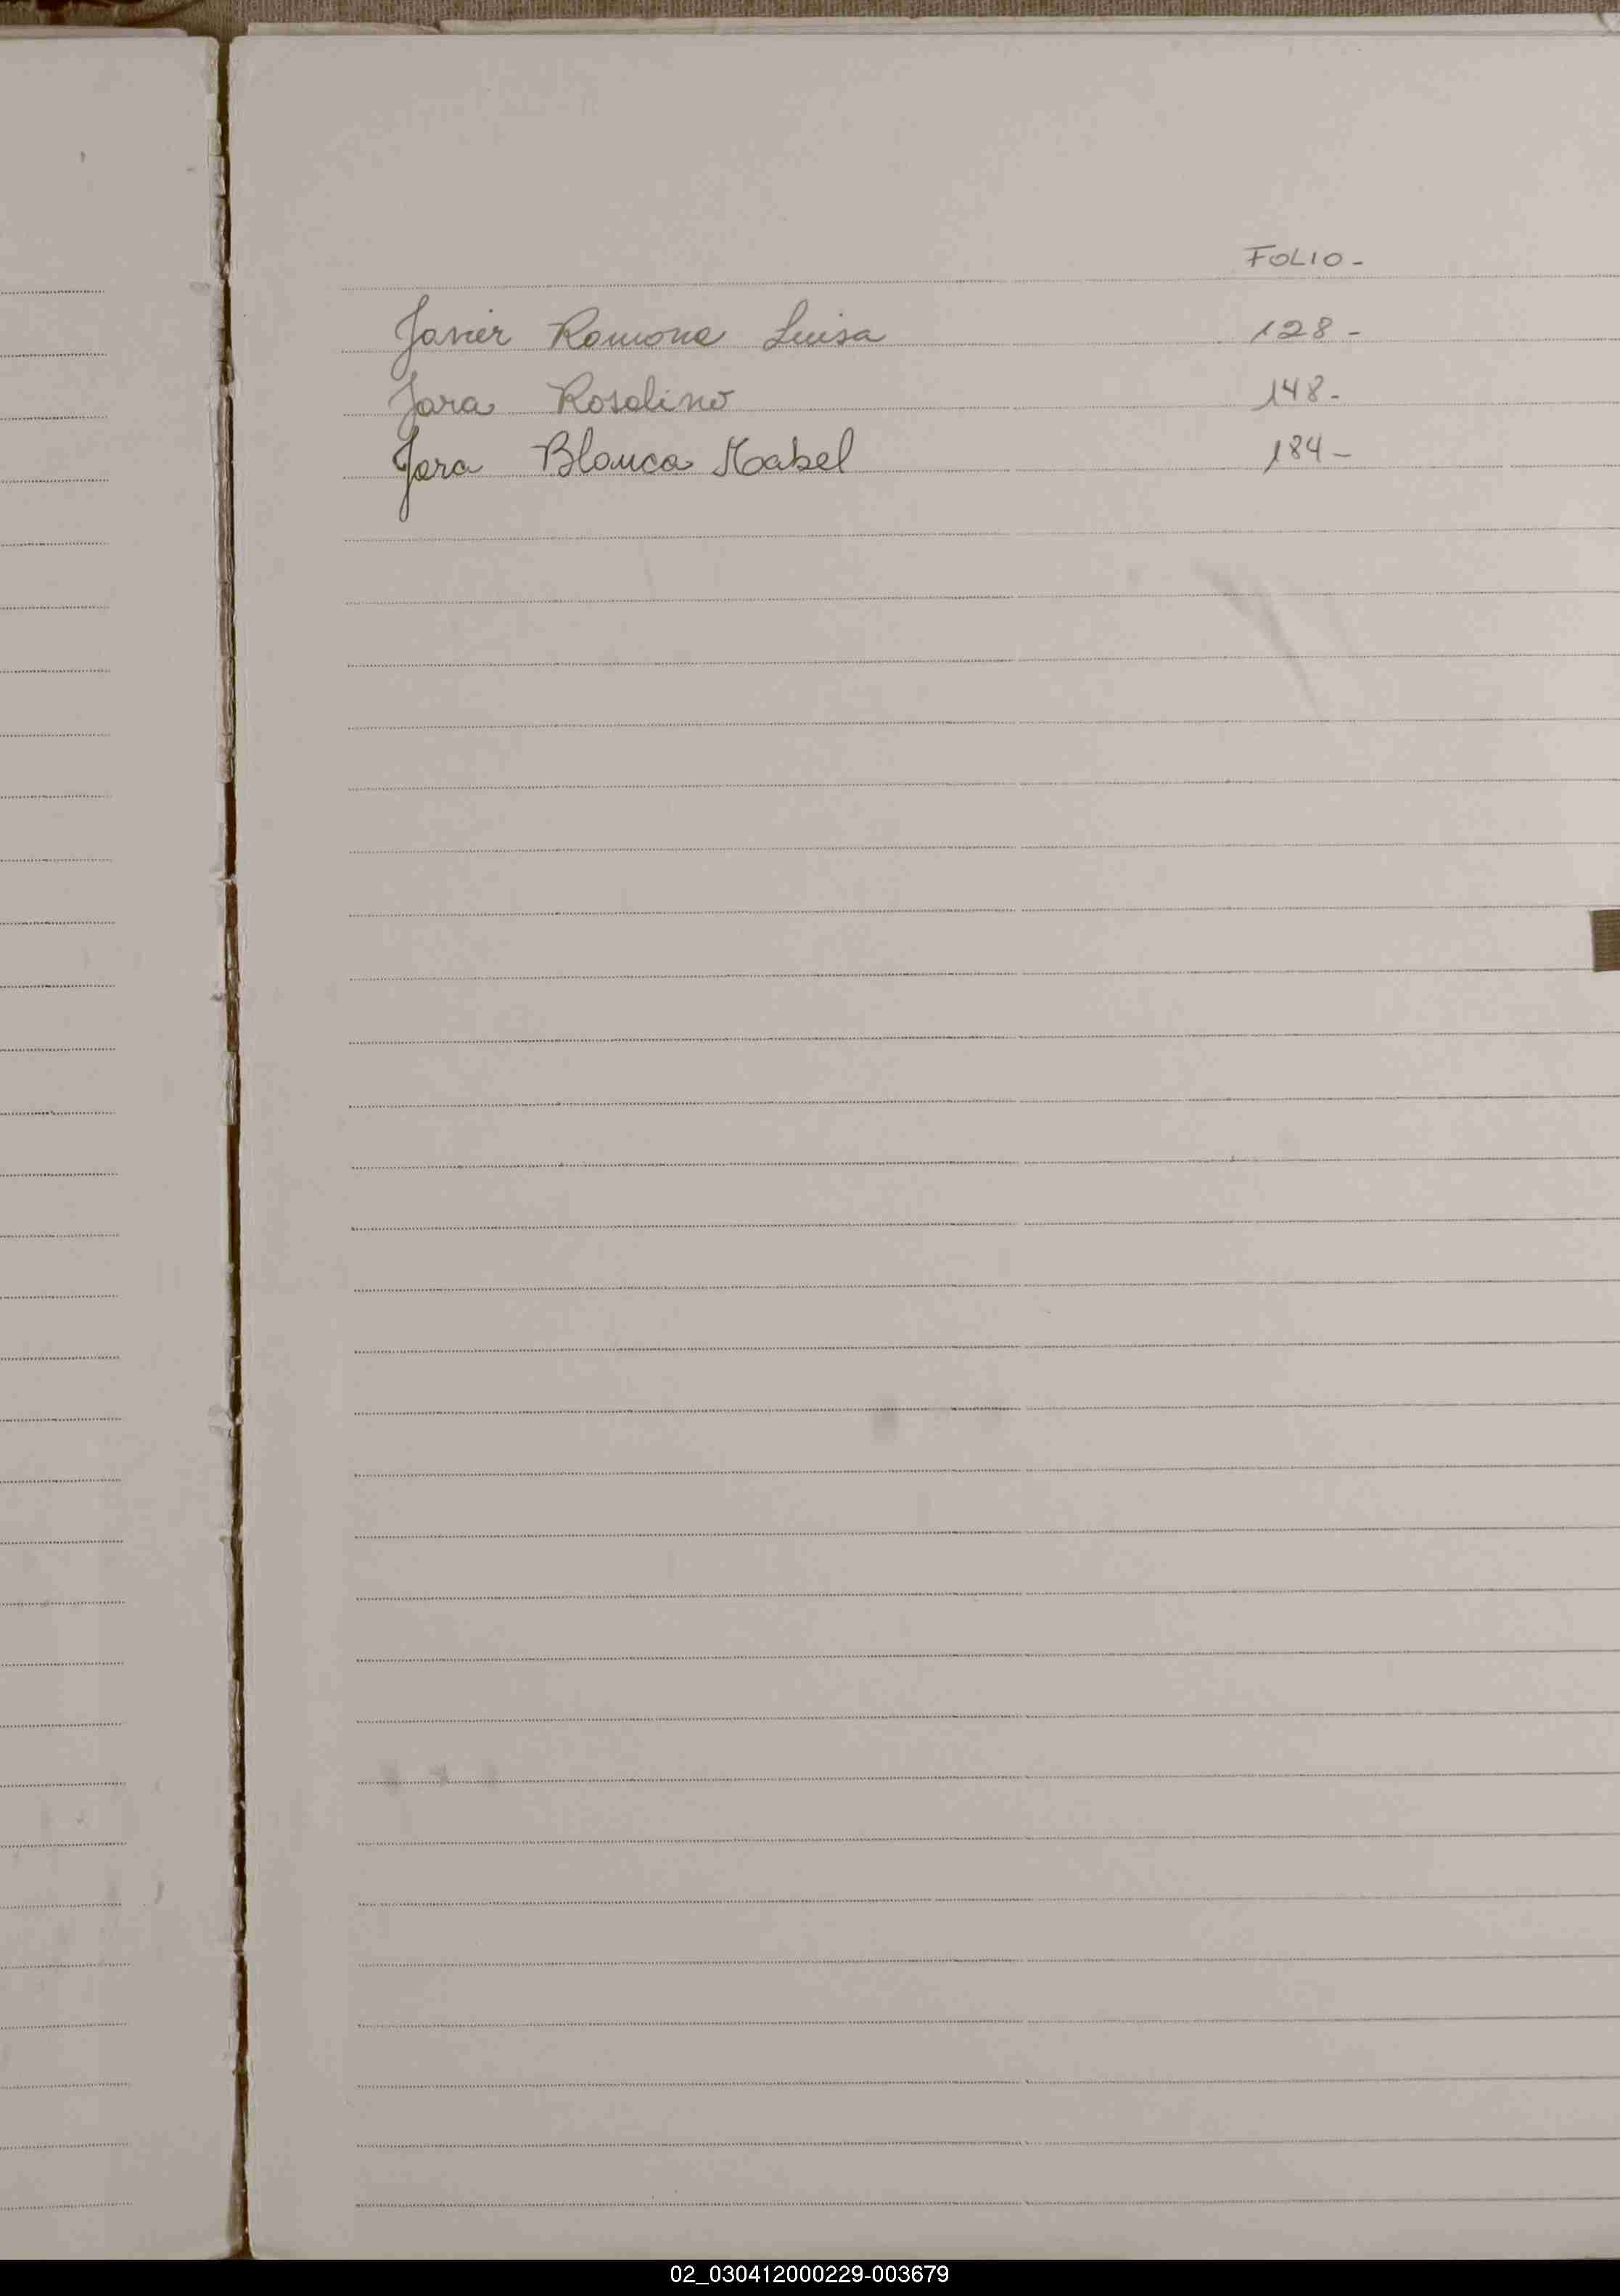 FOLIO -
Javier Ramona Luisa 128 -
Jara Rosalino 148 -
Jara Blanca Mabel 184 -
02_030412000229-003679